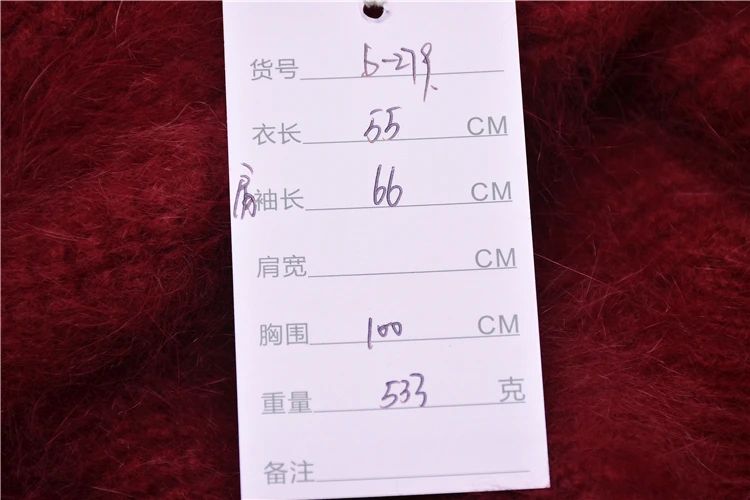 货号 b-279
衣长 55 CM
肩袖长 66 CM
肩宽 CM
胸围 100 CM
重量 533 克
备注